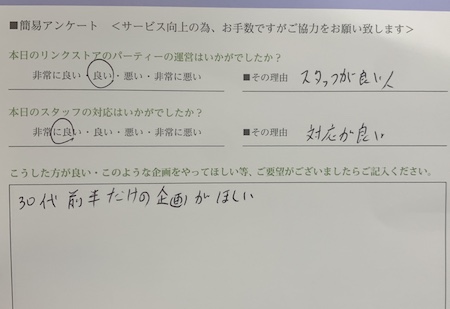 ■簡易アンケート ＜サービス向上の為、お手数ですがご協力をお願い致します＞
本日のリンクストアのパーティーの運営はいかがでしたか？
非常に良い・良い・悪い・非常に悪い ■その理由 スタッフが良い人
本日のスタッフの対応はいかがでしたか？
非常に良い・良い・悪い・非常に悪い ■その理由 対応が良い
こうした方が良い・このような企画をやってほしい等、ご要望がございましたらご記入ください。
30代前半だけの企画がほしい